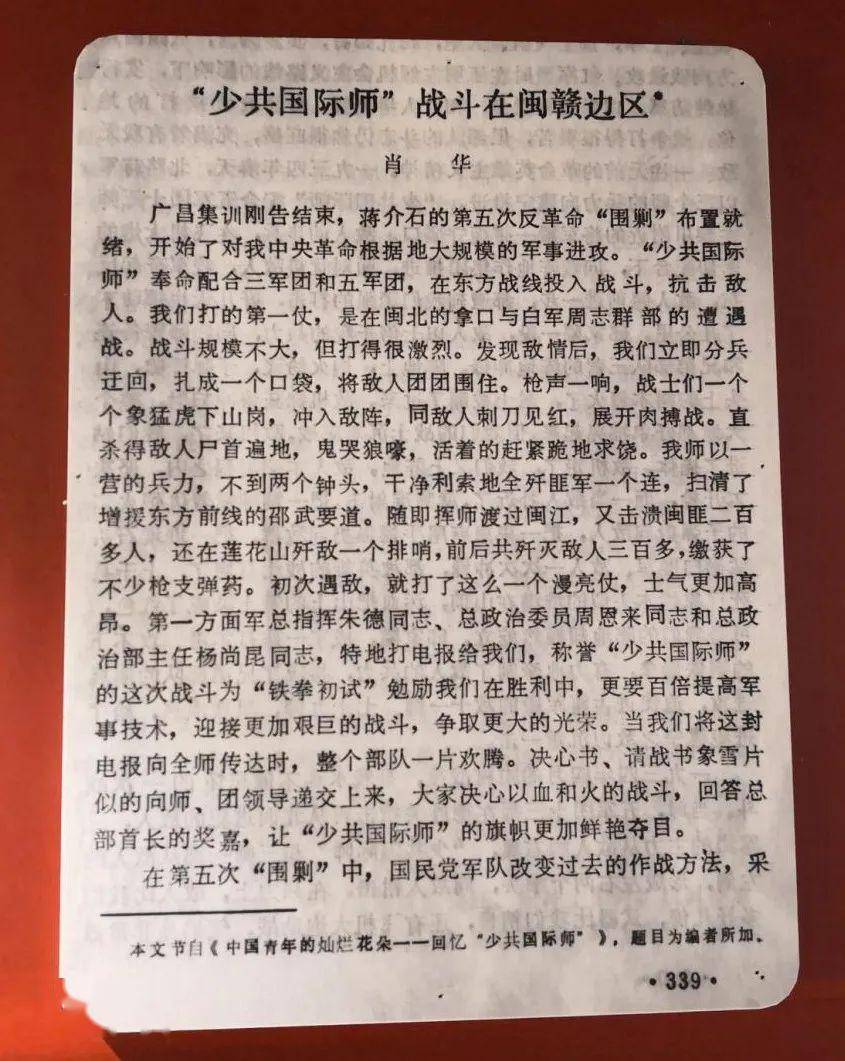 “少共国际师”战斗在闽赣边区*
肖 华
广昌集训刚告结束，蒋介石的第五次反革命“围剿”布置就
绪，开始了对我中央革命根据地大规模的军事进攻。“少共国际
师”奉命配合三军团和五军团，在东方战线投入战斗，抗击敌
人。我们打的第一仗，是在闽北的拿口与白军周志群部的遭遇
战。战斗规模不大，但打得很激烈。发现敌情后，我们立即分兵
迂回，扎成一个口袋，将敌人团团围住。枪声一响，战士们一个
个象猛虎下山岗，冲入敌阵，同敌人刺刀见红，展开肉搏战。直
杀得敌人尸首遍地，鬼哭狼嚎，活着的赶紧跪地求饶。我师以一
营的兵力，不到两个钟头，干净利索地全歼匪军一个连，扫清了
增援东方前线的邵武要道。随即挥师渡过闽江，又击溃闽匪二百
多人，还在莲花山歼敌一个排哨，前后共歼灭敌人三百多，缴获了
不少枪支弹药。初次遇敌，就打了这么一个漫亮仗，士气更加高
昂。第一方面军总指挥朱德同志、总政治委员周恩来同志和总政
治部主任杨尚昆同志，特地打电报给我们，称誉“少共国际师”
的这次战斗为“铁拳初试”勉励我们在胜利中，更要百倍提高军
事技术，迎接更加艰巨的战斗，争取更大的光荣。当我们将这封
电报向全师传达时，整个部队一片欢腾。决心书、请战书象雪片
似的向师、团领导递交上来，大家决心以血和火的战斗，回答总
部首长的奖嘉，让“少共国际师”的旗帜更加鲜艳夺目。
在第五次“围剿”中，国民党军队改变过去的作战方法，采
本文节自《中国青年的灿烂花朵——回忆“少共国际师”》，题目为编者所加。
·339·